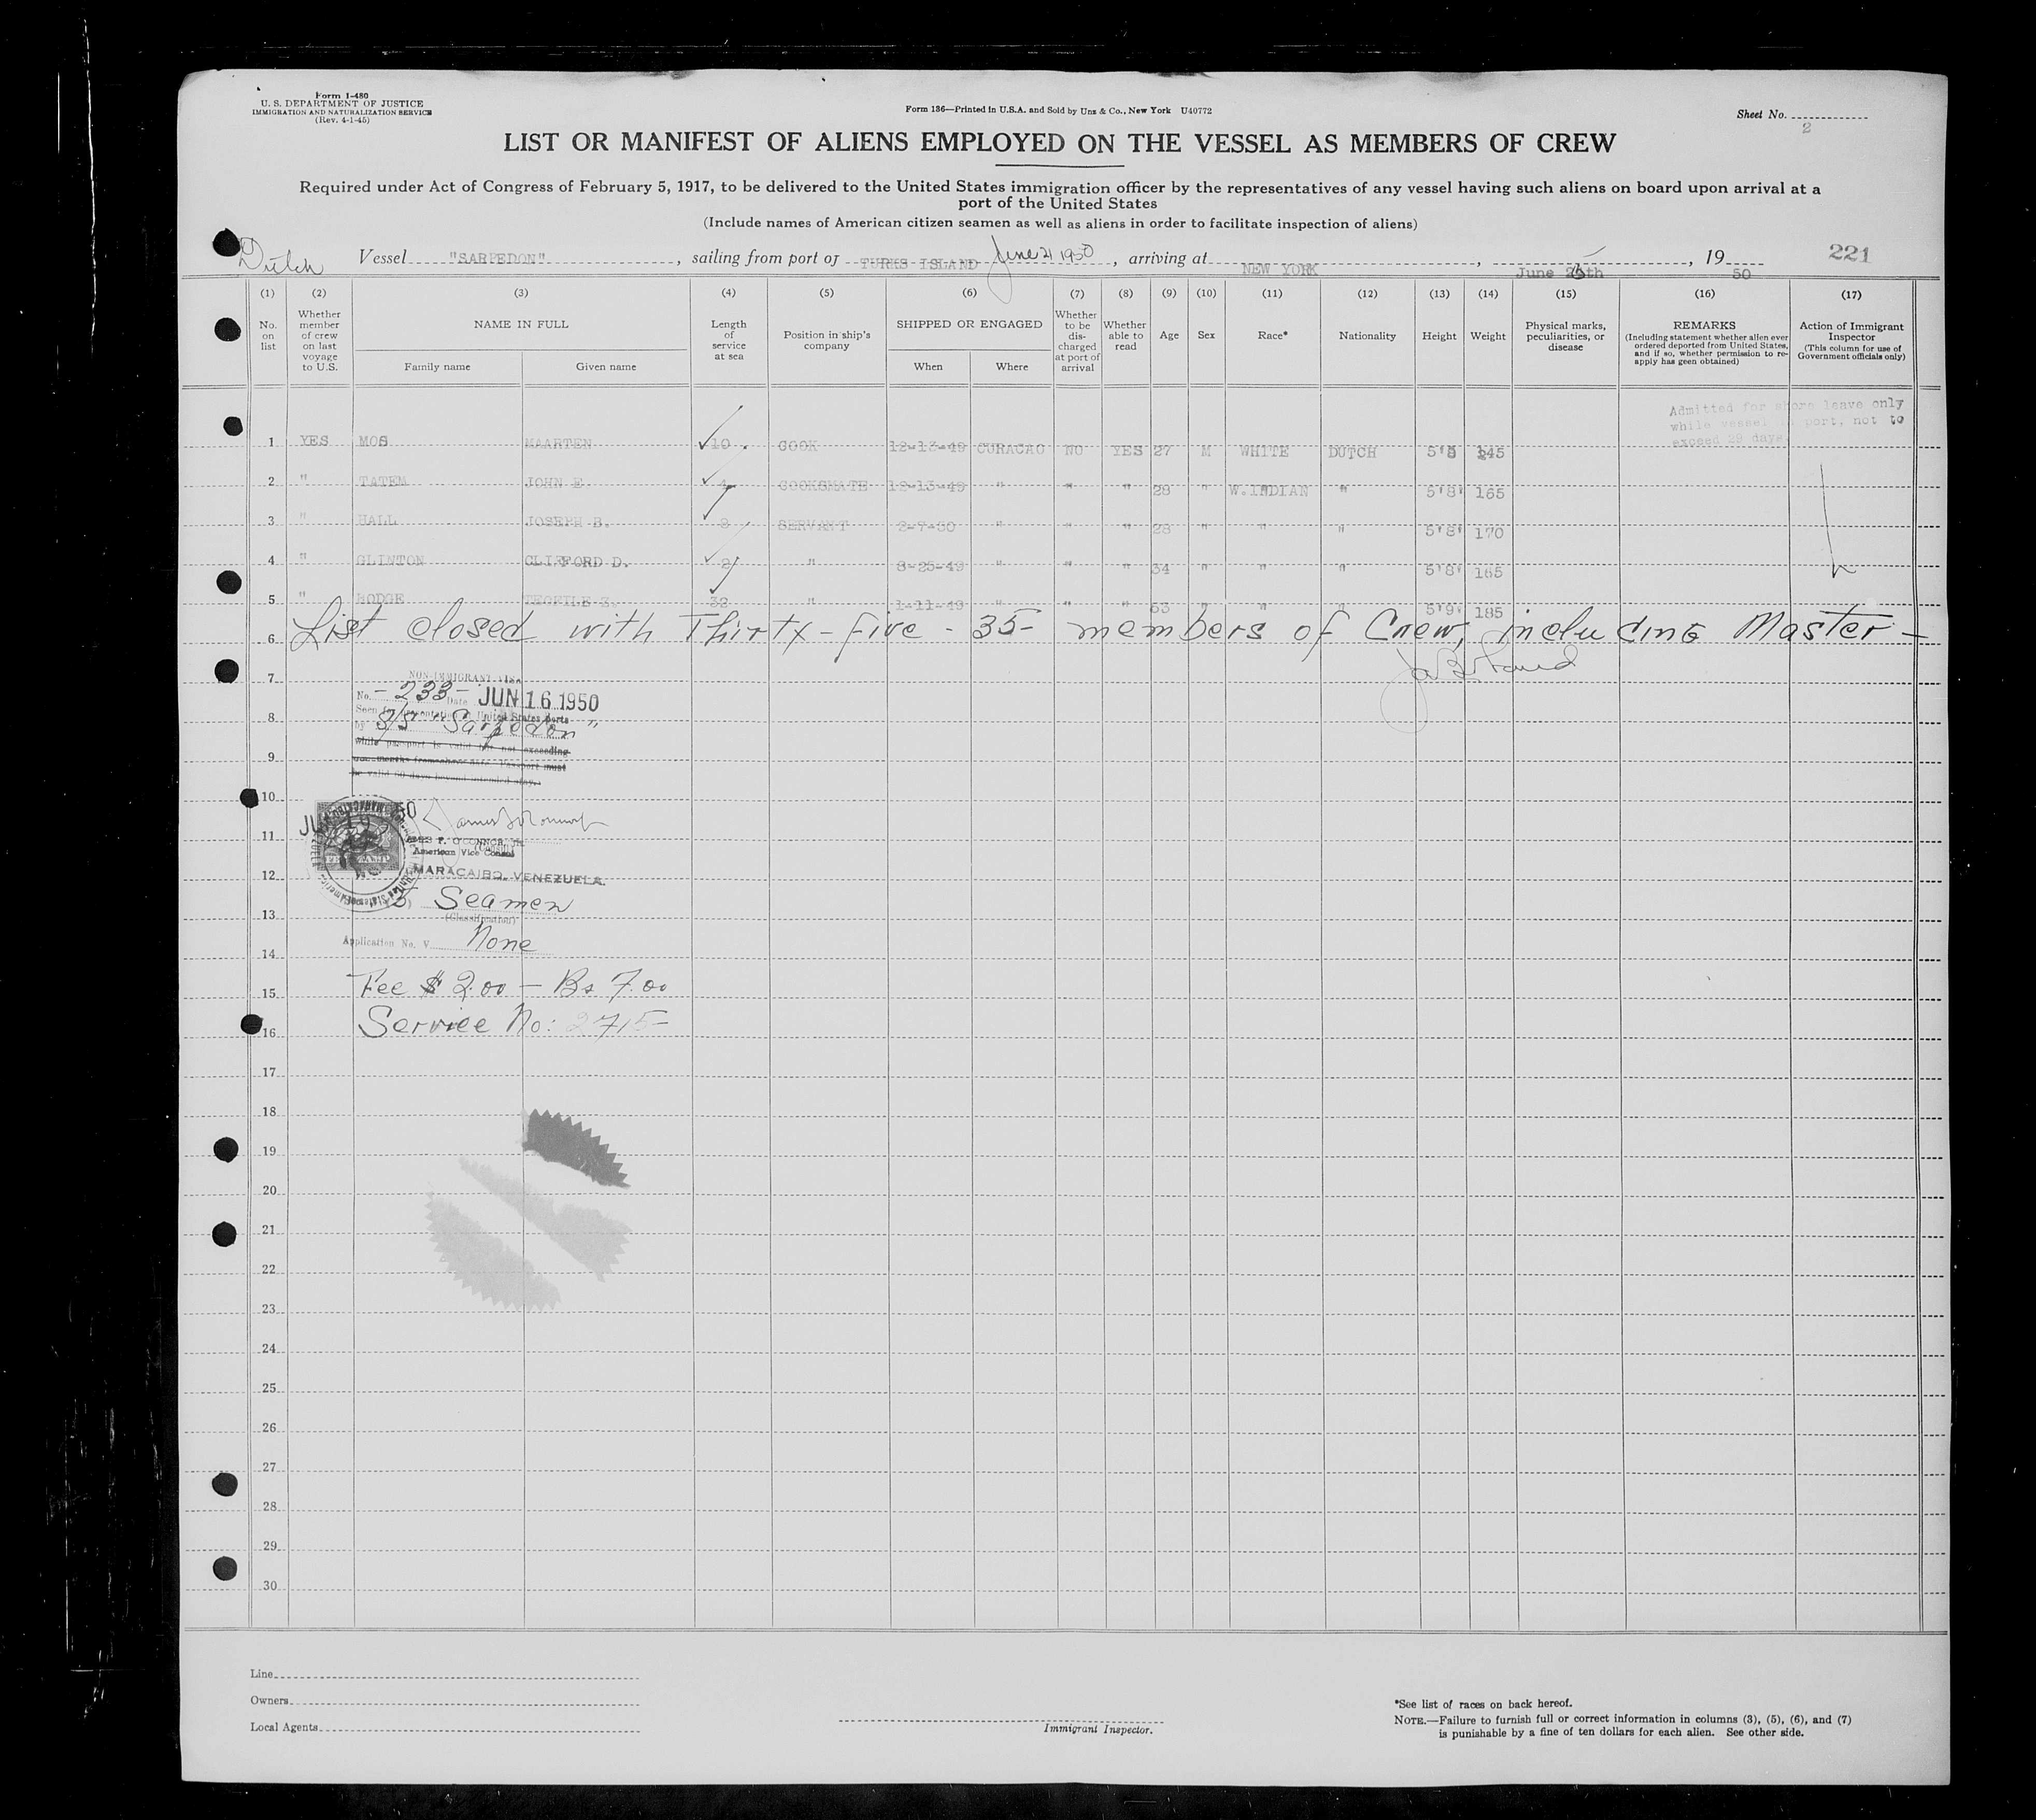 Form I-480
U. S. DEPARTMENT OF JUSTICE
IMMIGRATION AND NATURALIZATION SERVICE
(Rev. 4-1-45)
Form 136—Printed in U.S.A. and Sold by Unz & Co., New York U40772
Sheet No. 2
LIST OR MANIFEST OF ALIENS EMPLOYED ON THE VESSEL AS MEMBERS OF CREW
Required under Act of Congress of February 5, 1917, to be delivered to the United States immigration officer by the representatives of any vessel having such aliens on board upon arrival at a
port of the United States
(Include names of American citizen seamen as well as aliens in order to facilitate inspection of aliens)
Dutch Vessel "SARPEDON", sailing from port of TURKS ISLAND June 21 1950, arriving at NEW YORK, June th, 19 50 221
(1) (2) (3) (4) (5) (6) (7) (8) (9) (10) (11) (12) (13) (14) (15) (16) (17)
No. on list
Whether member of crew on last voyage to U.S.
NAME IN FULL
Family name
Given name
Length of service at sea
Position in ship's company
SHIPPED OR ENGAGED
When
Where
Whether to be discharged at port of arrival
Whether able to read
Age
Sex
Race*
Nationality
Height
Weight
Physical marks, peculiarities, or disease
REMARKS
(Including statement whether alien ever ordered deported from United States, and if so, whether permission to re-apply has geen obtained)
Action of Immigrant Inspector
(This column for use of Government officials only)
Admitted for shore leave only
while vessel in port, not to
exceed 29 days
1 YES MOS MAARTEN 10 COOK 12-13-49 CURACAO NO YES 27 M WHITE DUTCH 5'5 145
2 " TATEM JOHN E. 4 COOKSMATE 12-13-49 " " " 28 " W.INDIAN " 5'8" 165
3 " HALL JOSEPH B. 3 SERVANT 2-7-50 " " " 28 " " " 5'8" 170
4 " CLINTON CLIFFORD D. 2 " 8-25-49 " " " 34 " " " 5'8" 165
5 " HODGE TEOFILE 32 " 1-11-49 " " " 53 " " " 5'9" 185
6 List closed with Thirty-five - 35 - members of Crew, including Master -
7
NON-IMMIGRANT VISA
No. - 233 - Date JUN 16 1950
8
Seen for presentation at United States ports
by S/S "Sarpedon"
9
while passport is valid but not exceeding
months from date. Passport must
be valid 60 days beyond intended stay.
10
11
JAMES F. O'CONNOR, JR.
American Vice Consul
12
MARACAIBO, VENEZUELA.
FEE STAMP
13
Seamen
(Classification)
14
Application No. V None
15 Fee $ 2.00 — Bs 7.00
16 Service No: 2715-
17
18
19
20
21
22
23
24
25
26
27
28
29
30
Line
Owners
Local Agents
Immigrant Inspector.
*See list of races on back hereof.
NOTE.—Failure to furnish full or correct information in columns (3), (5), (6), and (7)
is punishable by a fine of ten dollars for each alien. See other side.